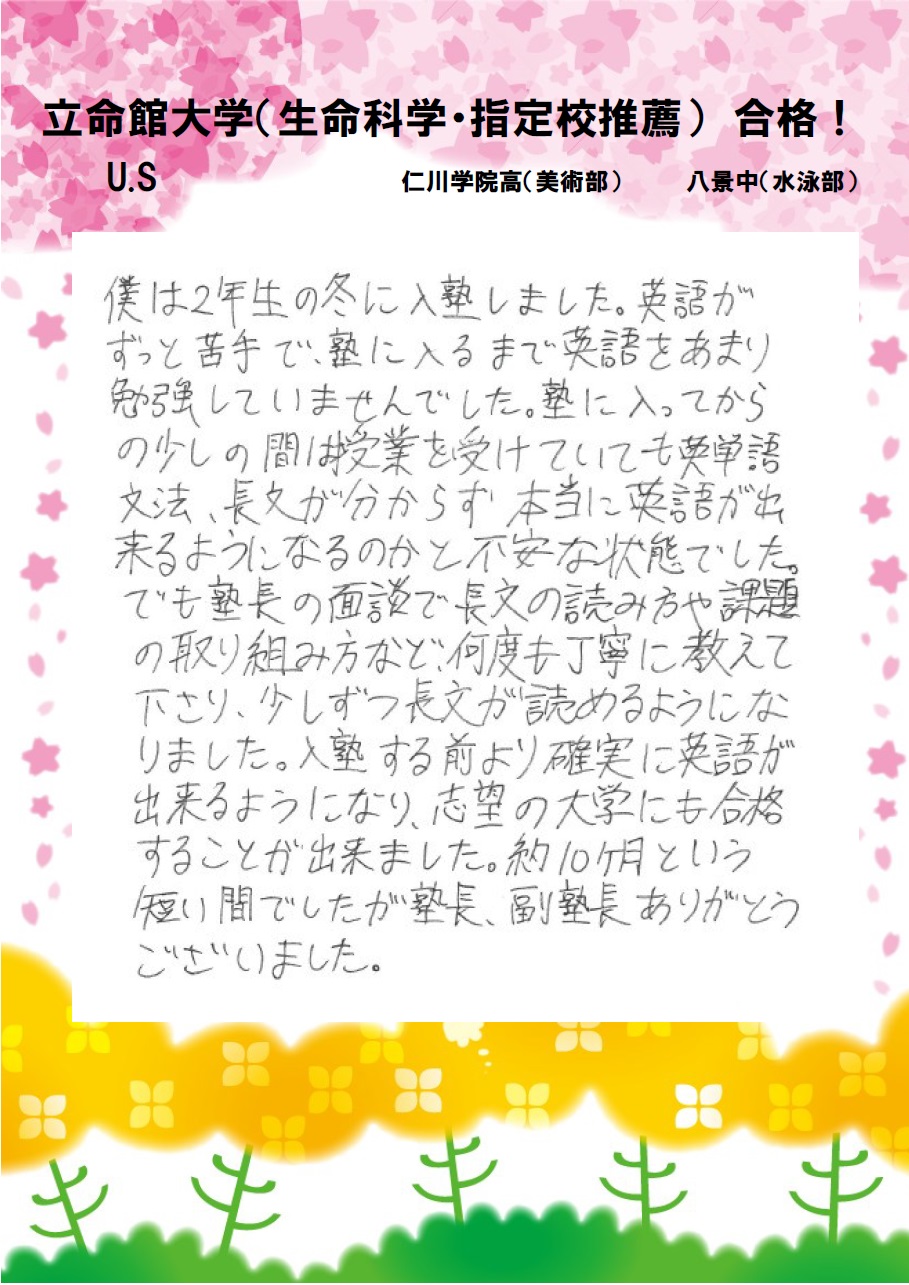 立命館大学(生命科学・指定校推薦) 合格!
U.S 仁川学院高(美術部) 八景中(水泳部)
僕は2年生の冬に入塾しました。英語が
ずっと苦手で、塾に入るまで英語をあまり
勉強していませんでした。塾に入ってから
の少しの間は授業を受けていても英単語
文法、長文が分からず本当に英語が出
来るようになるのかと不安な状態でした。
でも塾長の面談で長文の読み方や課題
の取り組み方など、何度も丁寧に教えて
下さり、少しずつ長文が読めるようにな
りました。入塾する前より確実に英語が
出来るようになり、志望の大学にも合格
することが出来ました。約10ヶ月という
短い間でしたが塾長、副塾長ありがとう
ございました。